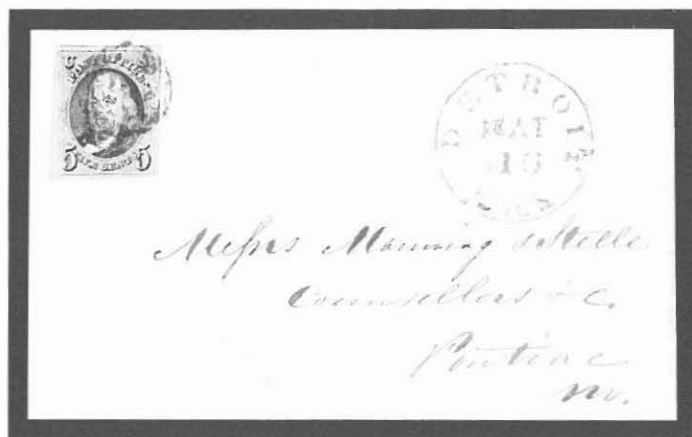 POST OFFICE
5 FIVE CENTS 5
DETROIT
MAY
16
MICH.
Messrs Manning & Stelle
Counsellers &c.
Pontiac
M.